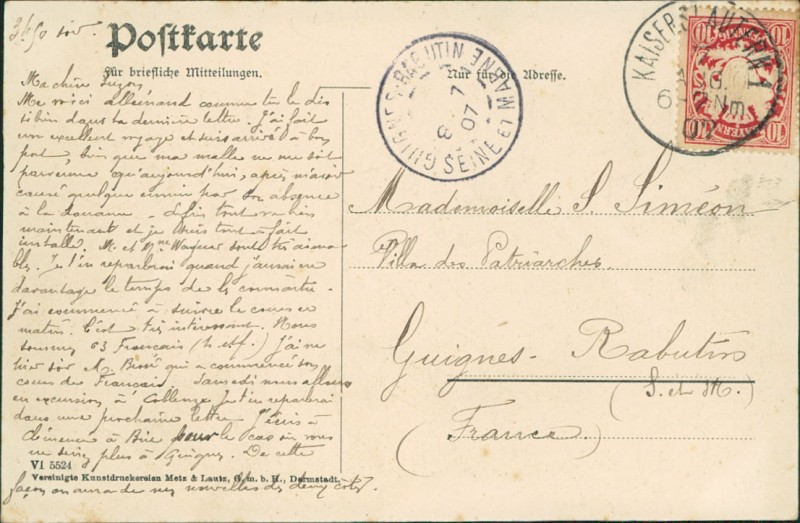 Postkarte
Für briefliche Mitteilungen.
Nur für die Adresse.
KAISERSLAUTERN 1
6-7 Nm.
07
10
BAYERN
GUIGNES-RABUTIN
7
8
07
SEINE ET MARNE
Ma chère
Me voici allemand comme tu le dis
si bien dans ta dernière lettre. J'ai fait
un excellent voyage et suis arrivé à bon
port, bien que ma malle ne me soit
parvenue qu'aujourd'hui, après m'avoir
causé quelque ennui par son absence
à la douane. Enfin tout va bien
maintenant et je suis tout à fait
installé. M. et Mme Wagner sont très aima-
bles. Je t'en reparlerai quand j'aurai eu
davantage le temps de les connaître.
J'ai commencé à suivre le cours ce
matin. C'est très intéressant. Nous
sommes 63 Français (h. et f.) J'ai vu
hier soir M. qui a commencé son
cours de Français. Samedi nous allons
en excursion à je t'en reparlerai
dans une prochaine lettre. J'écris à
Clémence à Brie pour le cas où vous
ne seriez plus à Guignes. De cette
façon on aura de mes nouvelles des deux côtés.
VI 5524
Vereinigte Kunstdruckereien Metz & Lautz, G. m. b. H., Darmstadt.
Mademoiselle S. Siméon
Villa des Patriarches.
Guignes-Rabutin
(S. et M.)
(France)